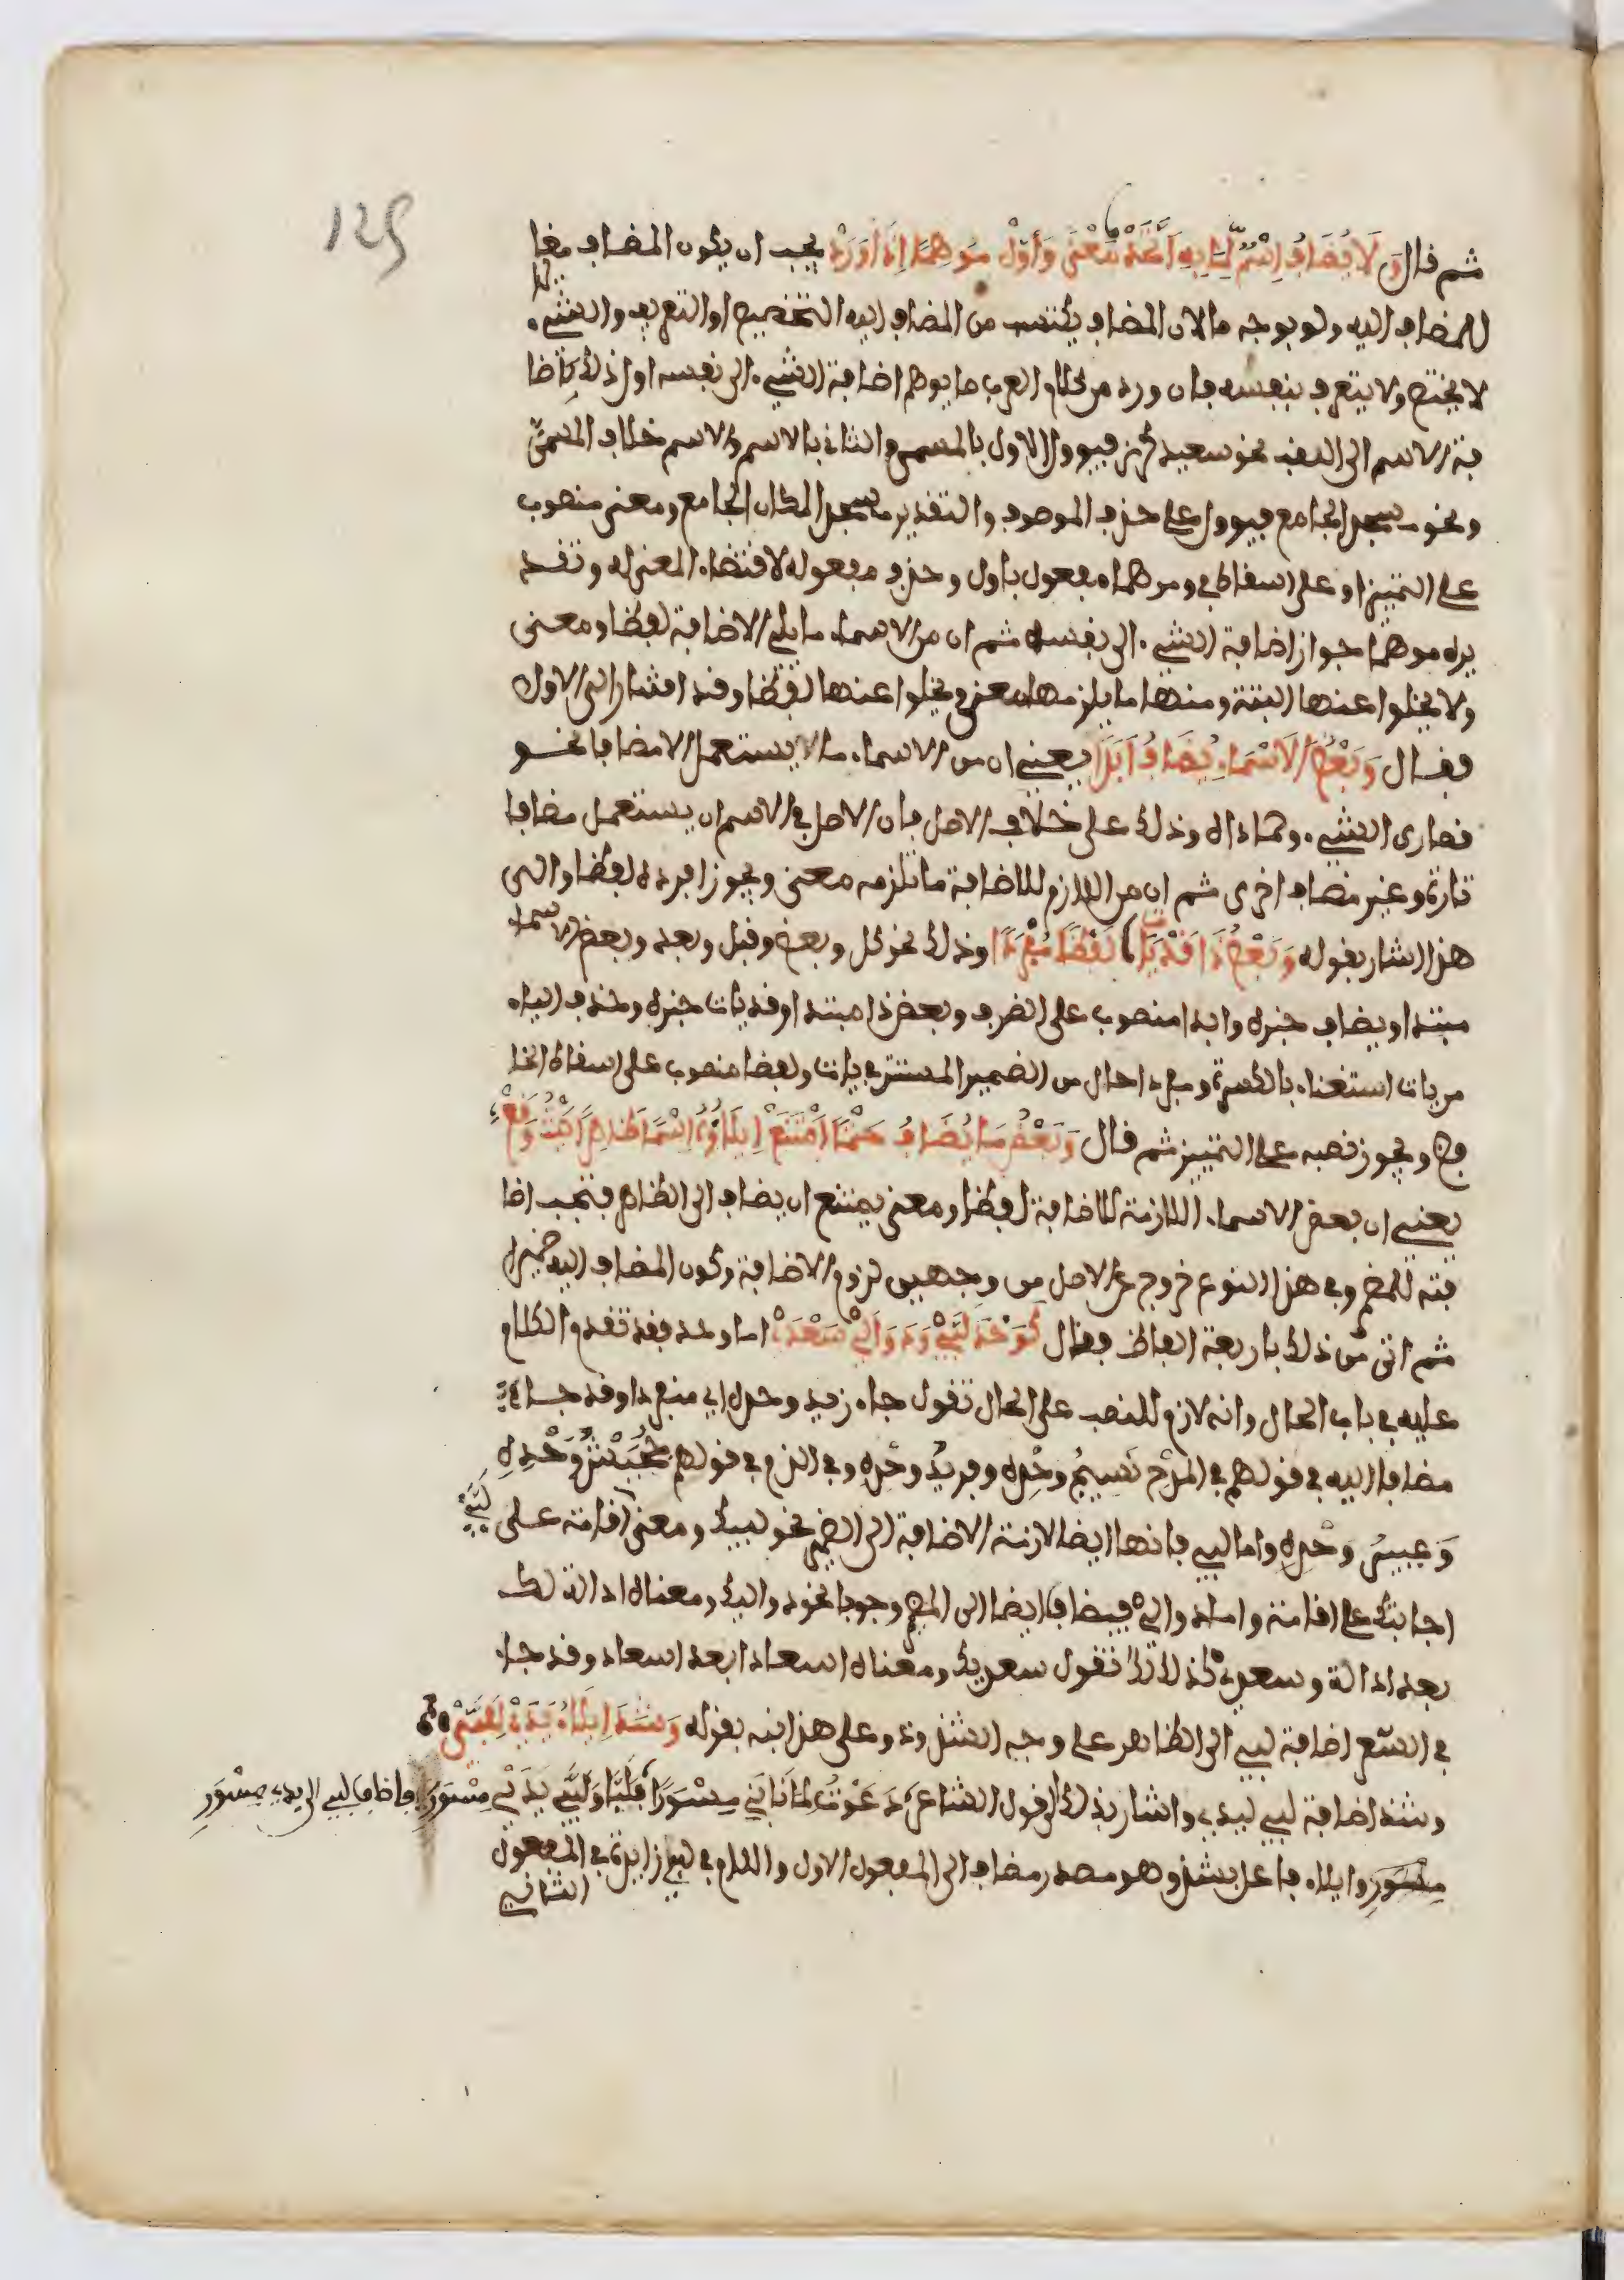 125
ثم قال وَلَا يُضَافُ اسْمٌ لِمَا بِهِ اتَّحَدْ مَعْنًى وَأَوِّلْ مُوهِمًا إِذَا وَرَدْ يجب ان يكون المضاف مغايرا
للمضاف اليه ولو بوجه ما لان المضاف يكتسب من المضاف اليه التخصيص او التعريف والشيء
لا يختص ولا يتعرف بنفسه فان ورد من كلام العرب ما يوهم اضافة الشيء الى نفسه اول ذلك كاضا
فة الاسم الى اللقب نحو سعيد كرز فيوول الاول بالمسمى والثاني بالاسم والاسم خلاف المسمى
ونحو مسجد الجامع فيوول على حذف الموصوف والتقدير مسجد المكان الجامع ومعنى منصوب
على التمييز او على اسقاط في وموهما مفعول باول وحذف مفعوله لاقتضاء المعنى له وتقد
يره موهما جواز اضافة الشيء الى نفسه ثم ان من الاسماء ما يلزم الاضافة لفظا ومعنى
ولا يخلوا عنها البتة ومنها ما يلزمها معنى ويخلوا عنها لفظا وقد اشار الى الاول
فقال وَبَعْضُ الْاَسْمَاءِ يُضَافُ اَبَدَا يعني ان من الاسماء ما لا يستعمل الا مضافا نحو
قصارى الشيء وحماداه وذلك على خلاف الاصل فان الاصل في الاسم ان يستعمل مضافا
تارة وغير مضاف اخرى ثم ان من اللازم للاضافة ما تلزمه معنى ويجوز افرده لفظا والى
هذا اشار بقوله وَبَعْضُ ذَا قَدْ يَاتِ لَفْظًا مُفْرَدَا وذلك نحو كل وبعض وقبل وبعد وبعض الاسماء
مبتدا ويضاف خبره وابدا منصوب على الظرف وبعض ذا مبتدا وقد يات خبره وحذف الياء
من يات استغناء بالكسرة ومفردا حال من الضمير المستتر في يات ولفظا منصوب على اسقاط الخا
فض ويجوز نصبه على التمييز ثم قال وَبَعْضُ مَا يُضَافُ حَتْمًا امْتَنَعْ اِيلَاؤُهُ اسْمًا ظَاهِرًا حَيْثُ وَقَعْ
يعني ان بعض الاسماء اللازمة للاضافة لفظا ومعنى يمتنع ان يضاف الى الظاهر فتجب اضا
فته للمضمر وفي هذا النوع خروج عن الاصل من وجهين لزوم الاضافة وكون المضاف اليه ضميرا
ثم اتى من ذلك باربعة الفاظ فقال كَوَحْدَ لَبَّيْ وَدَوَالَيْ سَعْدَيْ اما وحد فقد تقدم الكلام
عليه في باب الحال وانه لازم للنصب على الحال تقول جاء زيد وحده اي منفردا وقد جاء
مضافا اليه في قولهم في المدح نَسِيجُ وحْدِه وفريدُ وحْدِه وفي الذم في قولهم جُحَيْشُ وَحْدِهِ
وَعُيَيْرُ وحْدِهِ واما لبي فانها ايضا لازمة الاضافة الى المضمر نحو لبيك ومعنى لَبَّيْ اقامة على
اجابتك على اقامة واما دوالي فيضاف ايضا الى المضمر وجوبا نحو دواليك ومعناه ادالة لك
بعد ادالة وسعدي كذلك تقول سعديك ومعناه اسعادا بعد اسعاد وقد جاء
في الشعر اضافة لبي الى الظاهر على وجه الشذوذ وعلى هذا نبه بقوله وَشَذَّ اِيلَاءُ يَدَيْ لِلَبَّيْ
وشذ اضافة لبي ليدي واشار بذلك الى قول الشاعر دَعَوْتُ لِمَا نَابَنِي مِسْوَرًا فَلَبَّا وَلَبَّيْ يَدَيْ مِسْوَرِ فاضاف لبي الى يدي مِسْوَرِ
مِسْوَرِ وايلاء فاعل بشذ وهو مصدر مضاف الى المفعول الاول واللام في للبي زايدة في المفعول
الثاني